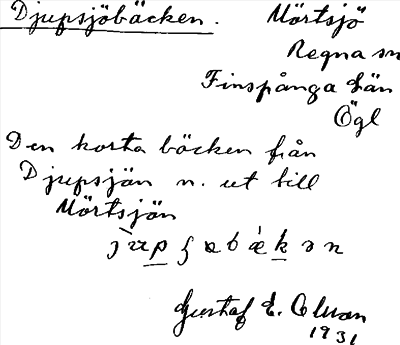 Djupsjöbäcken. Mörtsjö
Regna sn
Finspånga län
Ögl
Den korta bäcken från
Djupsjön n. ut till
Mörtsjön
Gustaf E.
1931